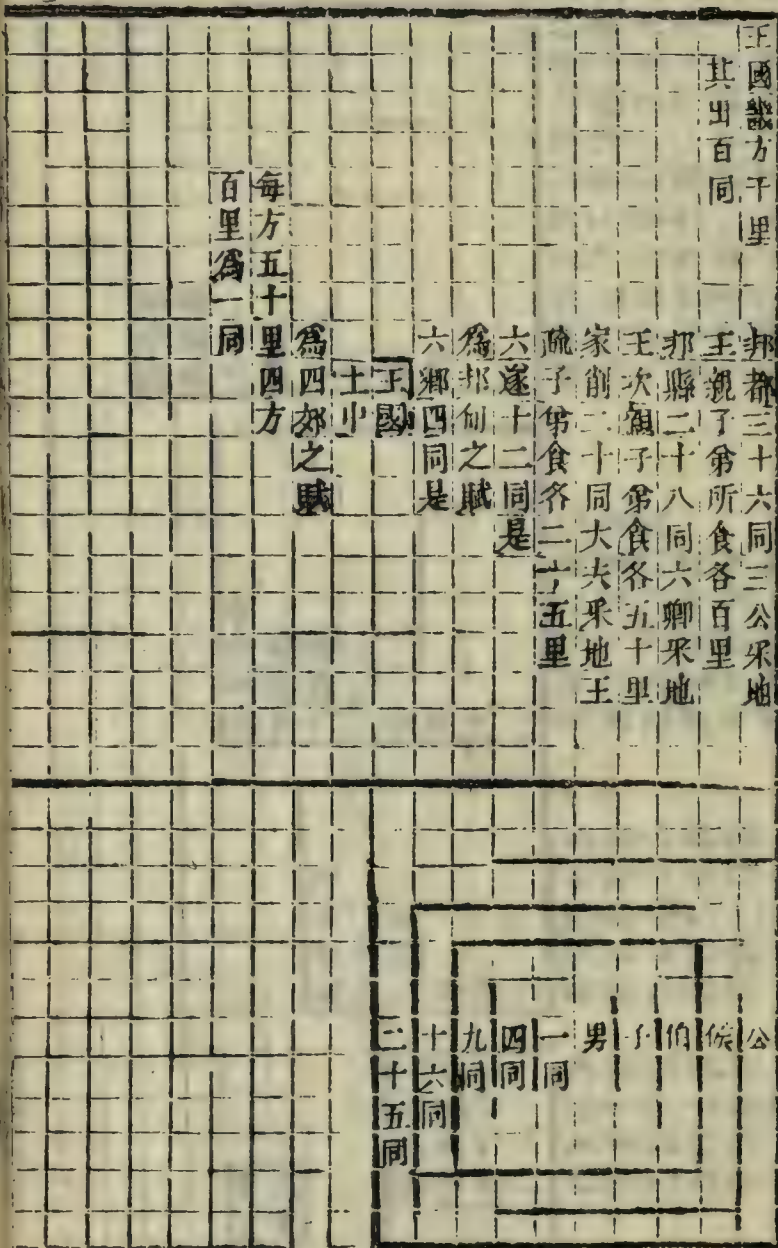 王國畿方千里
其出百同
邦都三十六同三公采地
王親子弟所食各百里
邦縣二十八同六卿采地
王次親子弟食各五十里
家削二十同大夫采地王
疏子弟食各二十五里
六遂十二同是
為邦甸之賦
六鄉四同是
王國
土中
為四郊之賦
每方五十里四方
百里為一同
公
侯
伯
子
男
一同
四同
九同
十六同
二十五同